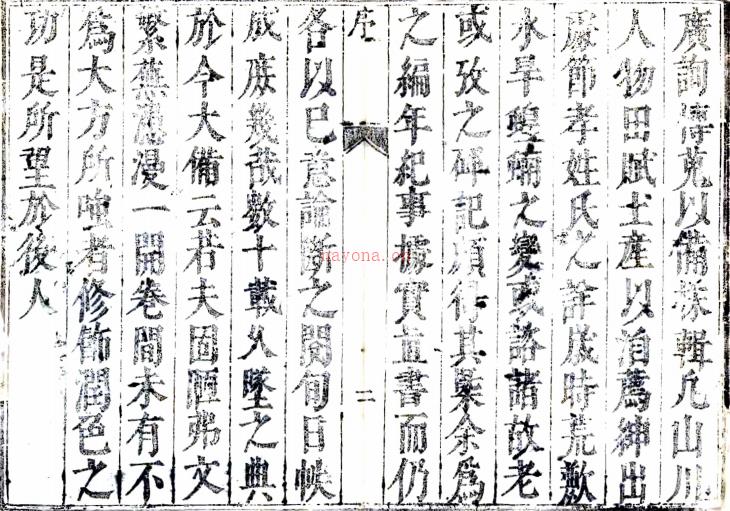 廣詢博克以備採輯凡山川
人物田賦土產以洎薦紳出
處節孝姓氏之詳歲時荒歉
水旱蝗蝻之變或諮諸故老
或攷之碑記頗得其槩余爲
之編年紀事據實直書而仍
序
二
各以巳意論斷之閱旬日帙
成庶幾哉數十載久墜之典
於今大備云若夫固陋弗文
繁蕪漫一開卷間未有不
爲大方所嗤者修飾潤色之
功是所望於後人
nayona.cn